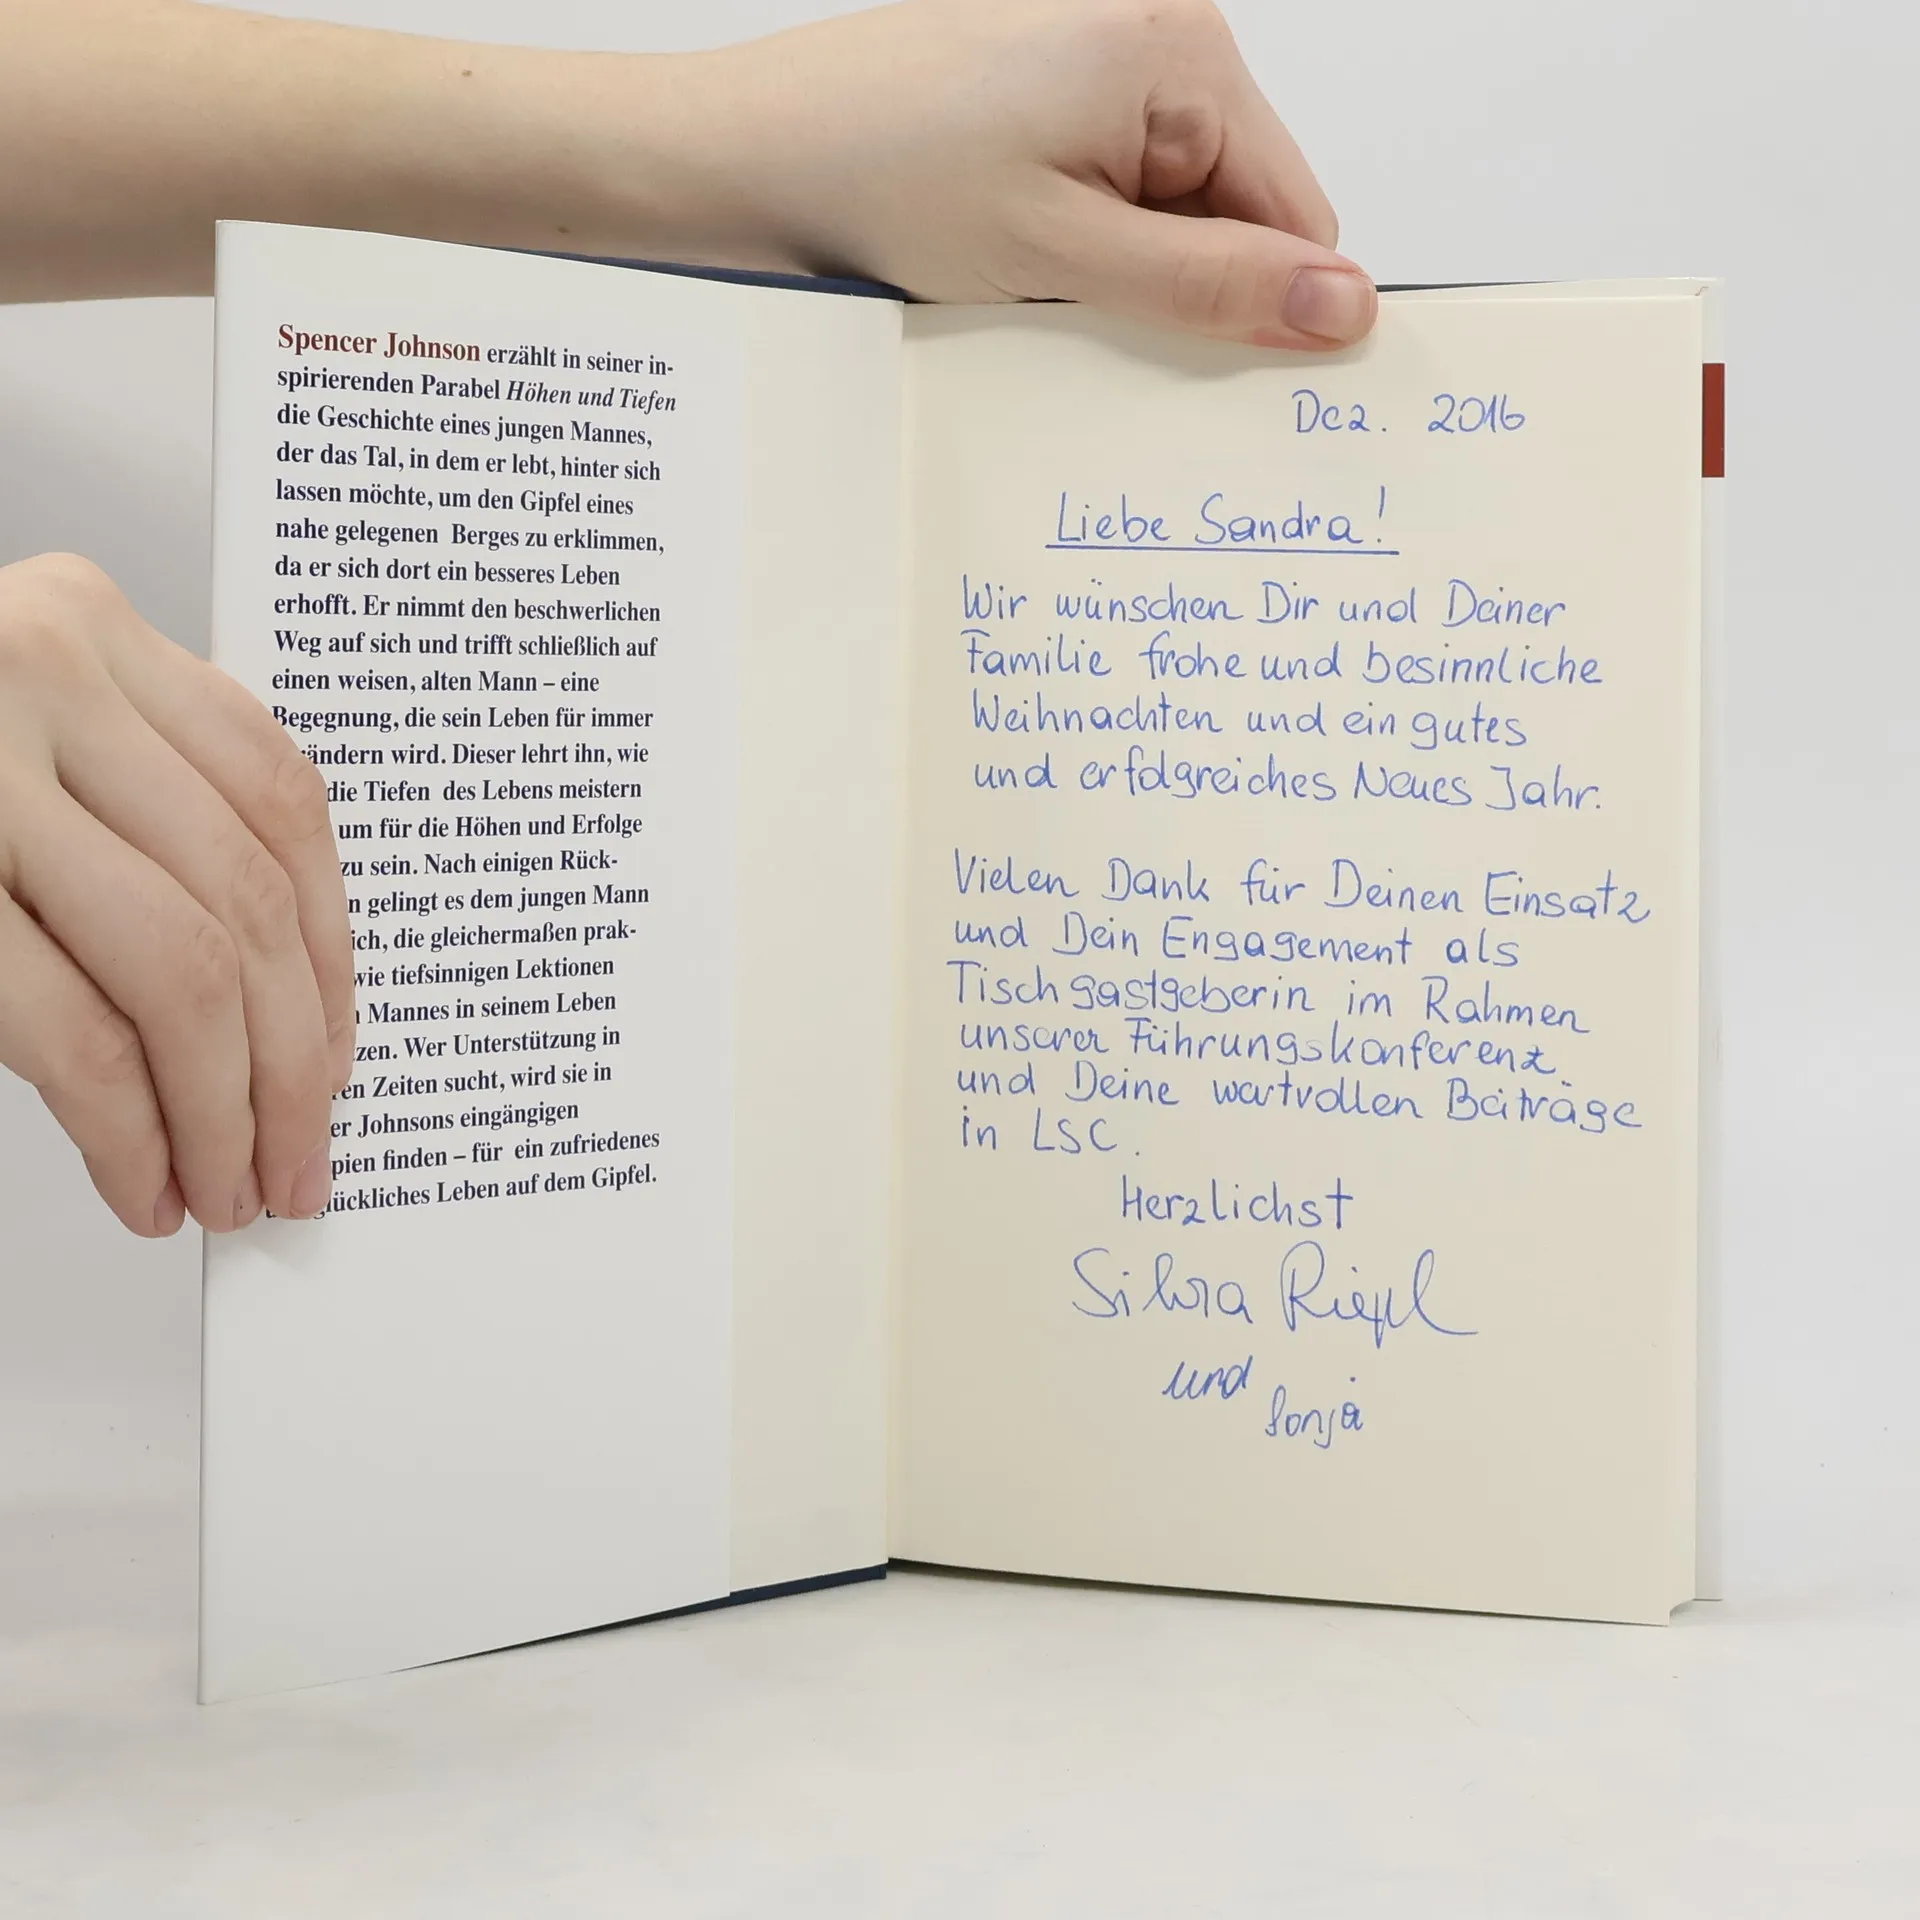 Spencer Johnson erzählt in seiner in-
spirierenden Parabel Höhen und Tiefen
die Geschichte eines jungen Mannes,
der das Tal, in dem er lebt, hinter sich
lassen möchte, um den Gipfel eines
nahe gelegenen Berges zu erklimmen,
da er sich dort ein besseres Leben
erhofft. Er nimmt den beschwerlichen
Weg auf sich und trifft schließlich auf
einen weisen, alten Mann – eine
Begegnung, die sein Leben für immer
ändern wird. Dieser lehrt ihn, wie
die Tiefen des Lebens meistern
um für die Höhen und Erfolge
zu sein. Nach einigen Rück-
n gelingt es dem jungen Mann
ich, die gleichermaßen prak-
wie tiefsinnigen Lektionen
Mannes in seinem Leben
zen. Wer Unterstützung in
en Zeiten sucht, wird sie in
er Johnsons eingängigen
pien finden – für ein zufriedenes
lückliches Leben auf dem Gipfel.
Dez. 2016
Liebe Sandra!
Wir wünschen Dir und Deiner
Familie frohe und besinnliche
Weihnachten und ein gutes
und erfolgreiches Neues Jahr.
Vielen Dank für Deinen Einsatz
und Dein Engagement als
Tischgastgeberin im Rahmen
unserer Führungskonferenz
und Deine wertvollen Beiträge
in LSC.
Herzlichst
Silvia Riepl
und
Sonja